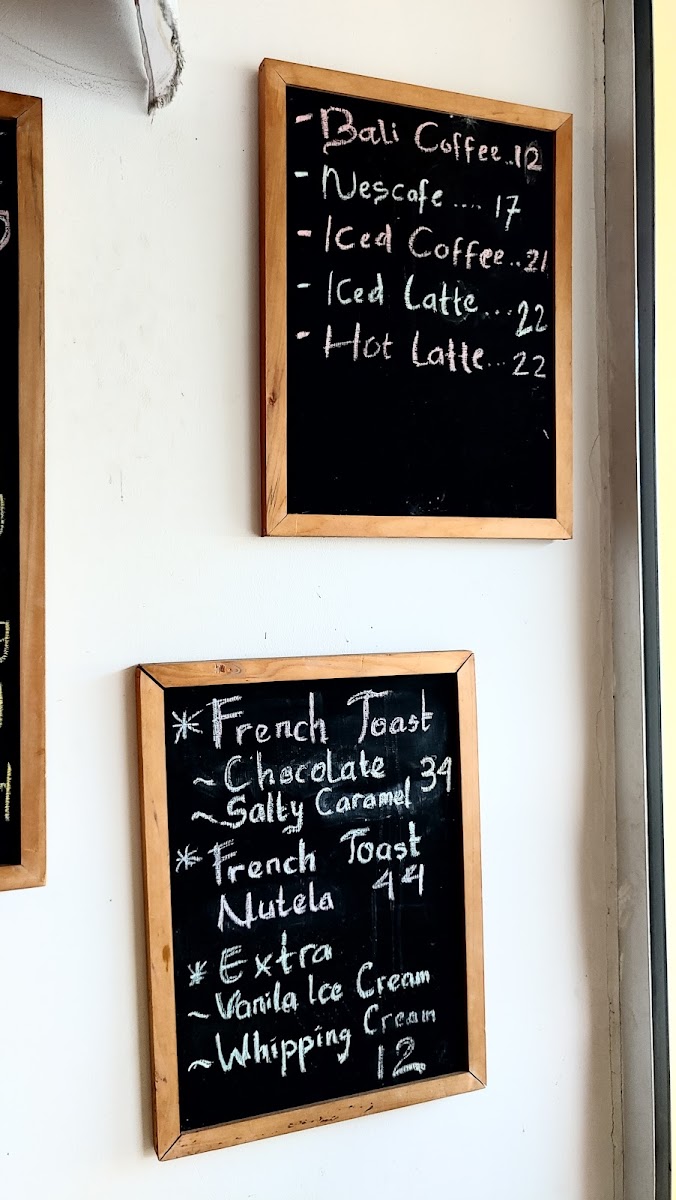 - Bali Coffee..12
- Nescafe .... 17
- Iced Coffee..21
- Iced Latte...22
- Hot Latte...22
* French Toast
~ Chocolate 34
~ Salty Caramel
* French Toast
44
Nutela
* Extra
~ Vanila Ice Cream
~ Whipping Cream
12